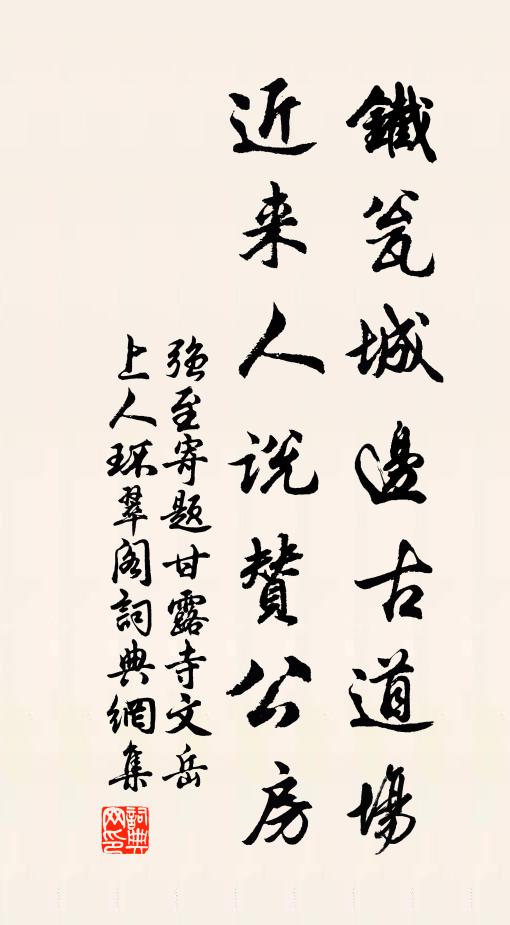 鐵瓮城邊古道場
近来人说贊公房
强至寄题甘露寺文岳
上人环翠阁詞典網集
詞典網印